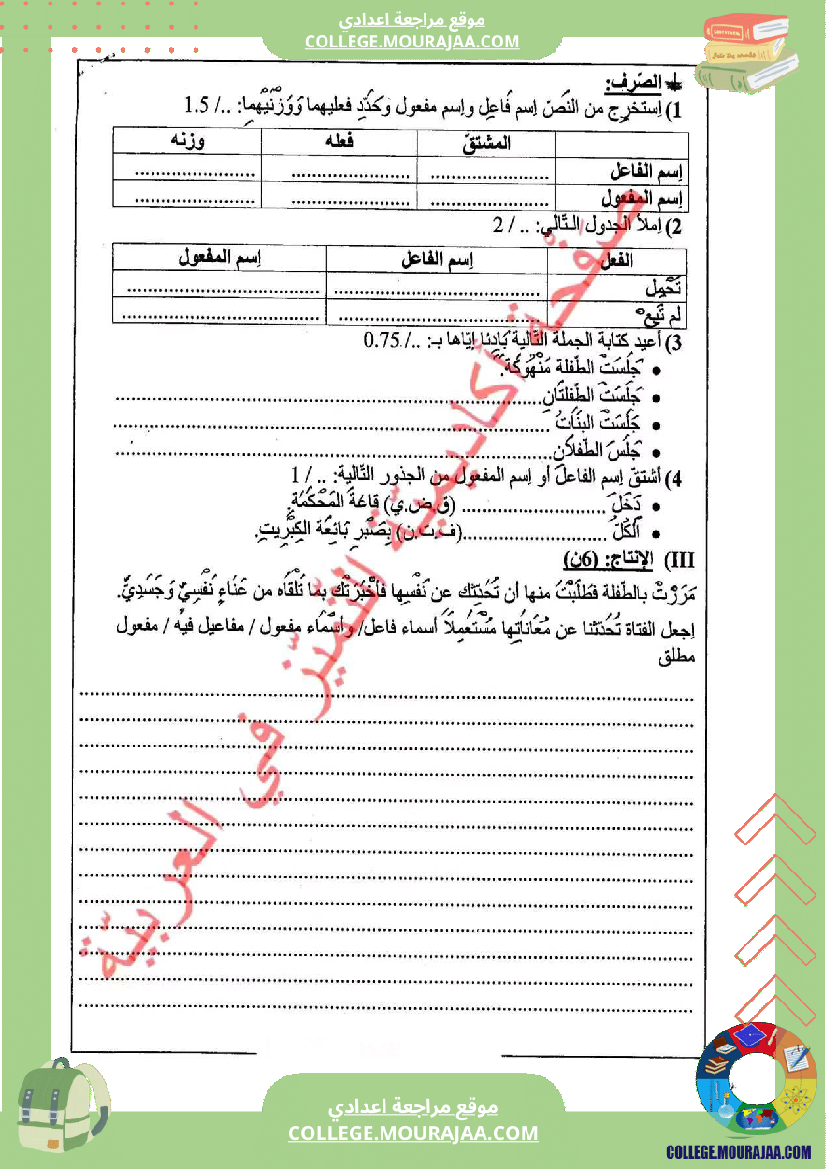 موقع مراجعة اعدادي
COLLEGE.MOURAJAA.COM
الصّرف:
1) اِستخرِج من النّصّ اِسم فَاعِل واِسم مفعول وَحَدِّد فعليهما وَوَزْنَيْهما: ../ 1.5
المشتقّ فعله وزنه
اِسم الفاعل ........................ ........................ ........................
اِسم المفعول ........................ ........................ ........................
2) اِملأ الجدول التّالي: .. / 2
الفعل اِسم الفاعل اِسم المفعول
تَحْمِل ........................ ........................
لم تَبِعْ ........................ ........................
3) أعيد كتابة الجملة التّالية بَادِئا إيّاها بـ: ../0.75
• جَلَسَتْ الطّفلة مَنْهُوكَة.
• جَلَسَتْ الطّفلتَانِ........................
• جَلَسَتْ البنَاتُ ........................
• جَلَسَ الطّفلاَنِ........................
4) أشتقّ اِسم الفاعل أو اِسم المفعول من الجذور التّالية: .. / 1
• دَخَلَ ........................ (ق.ض.ي) قاعَةَ المَحْكَمَةِ
• اَلكُلُّ ........................(ف.ت.ن) بِصَبْرِ بَائِعَة الكِبْرِيتِ.
III) الإنتاج: (6ن)
مَرَرْتَ بالطّفلة فطَلَبْتَ منها أن تُحَدِّثك عن نَفْسِها فأخْبَرَتْك بما تَلْقَاه من عَنَاءٍ نَفْسِيٍّ وَجَسَدِيٍّ.
اِجعل الفتاة تُحَدّثنا عن مُعَانَاتِها مُسْتَعْمِلاً أسماء فاعل/ وأسْمَاء مفعول / مفاعيل فيه / مفعول
مطلق
صفحة أكاديميّة التّميّز في العربيّة
موقع مراجعة اعدادي
COLLEGE.MOURAJAA.COM
COLLEGE.MOURAJAA.COM